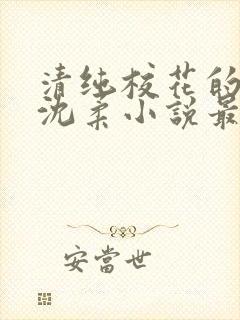 清纯校花的
沈柔小説最
安當世